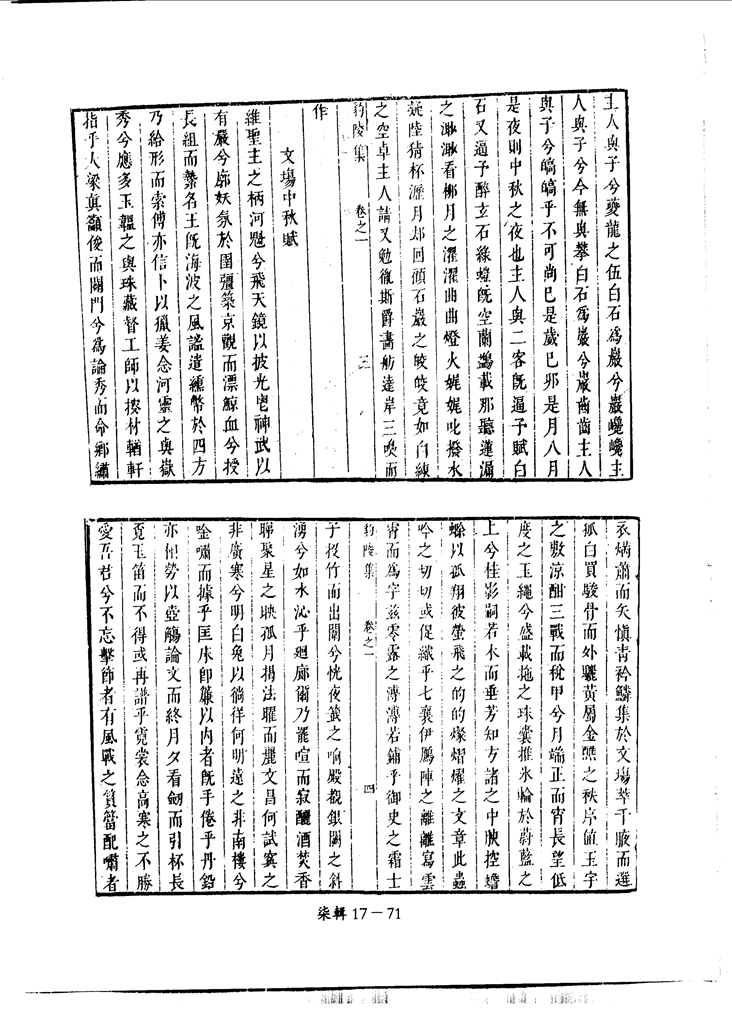 主人與子兮夔龍之伍白石爲巖兮巖巉巉主
人與子兮今無與攀白石爲巖兮巖齒齒主人
與子兮皜皜乎不可尚已是歲巳卯是月八月
是夜則中秋之夜也主人與二客旣逼予賦白
石又逼予醉玄石綠螘旣空蘭鷁載那聽蓮漏
之溵溵看梛月之濯濯曲曲燈火娓娓叱撥水
陸猜杯瀝月却回頋石巖之皎皎竟如白練
之空卓主人請又勉徹斯爵畵舫達岸三喚而
豹陵集 卷之一 三
作
文塲中秋賦
維聖主之柄河魁兮飛天鏡以披光皆神武以
有嚴兮廓妖氛於圉疆築京觀而漂鯨血兮授
長組而縶名王旣海波之風謐遣纁幣於四方
乃給形而索傅亦信卜以獵姜念河靈之與嶽
秀兮應多玉韞之與珠藏督工師以掞材輶軒
指乎人梁眞籲俊而闢門兮爲論秀而命鄕繡
衣煱肅而矢愼靑衿鱗集於文塲萃千腋而選
狐白買駿骨而外驪黃屬金醮之秩序値玉宇
之敷涼酣三戰而稅甲兮月端正而宵長望低
度之玉繩兮盛載拖之珠囊推氷輪於蔚藍之
上兮桂影嗣若木而垂芳知方諸之中腴控蟾
蜍以孤翔彼螢飛之的的燦熠燿之文章此蟲
吟之切切或促織乎七襄伊鴈陣之離離寫雲
霄而爲字茲零露之漙漙若鋪乎御史之霜士
豹陵集 卷之一 四
于投竹而出闈兮恍夜籤之响殿覩銀闕之斜
湧兮如水沁乎廻廊爾乃罷喧而寂釃酒焚香
聊聚星之映孤月揚法曜而麗文昌何試寞之
非廣寒兮明白兔以徜徉何明遠之非南樓兮
唫嘯而據乎匡牀卽簾以內者旣手倦乎丹鉛
亦但勞以壺觴論文而終月夕看劒而引杯長
覓玉笛而不得或再譜乎霓裳念高寒之不勝
愛吾君兮不忘擊節者有風戰之篔簹配嘯者
柒輯 17－71